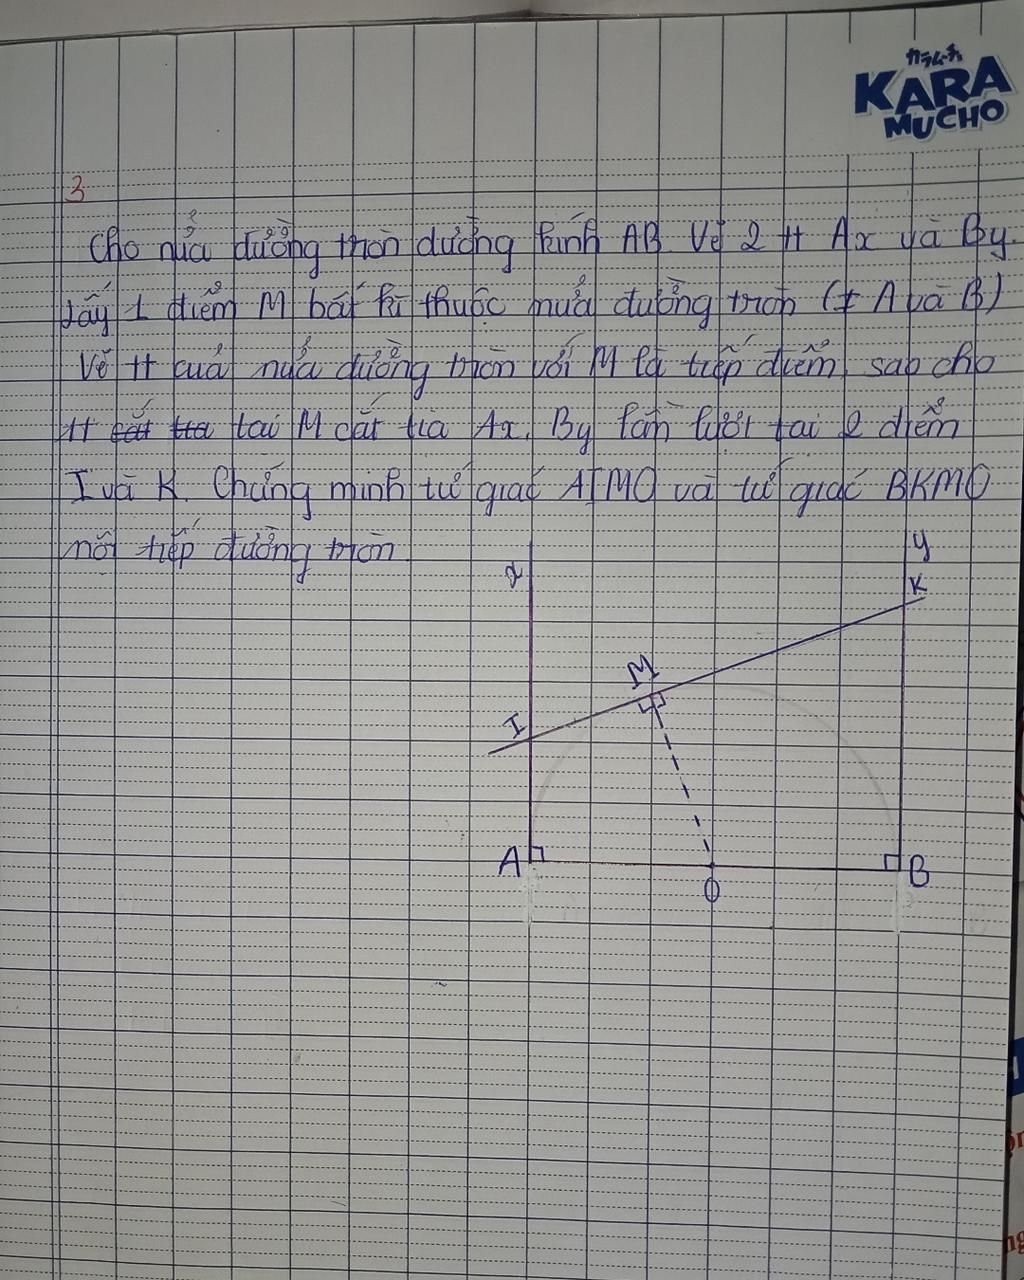 カラムーチョ
KARA
MUCHO
3
Cho nửa đường tròn đường kính AB Vẽ 2 tt Ax và By.
Lấy 1 điểm M bất kì thuộc nửa đường tròn (≠ A và B)
Vẽ tt của nửa đường tròn với M là tiếp điểm, sao cho
tt cắt tia tại M cắt tia Ax, By lần lượt tại 2 điểm
I và K. Chứng minh tứ giác AIMO và tứ giác BKMO
nội tiếp đường tròn
x
y
K
M
I
A
B
O